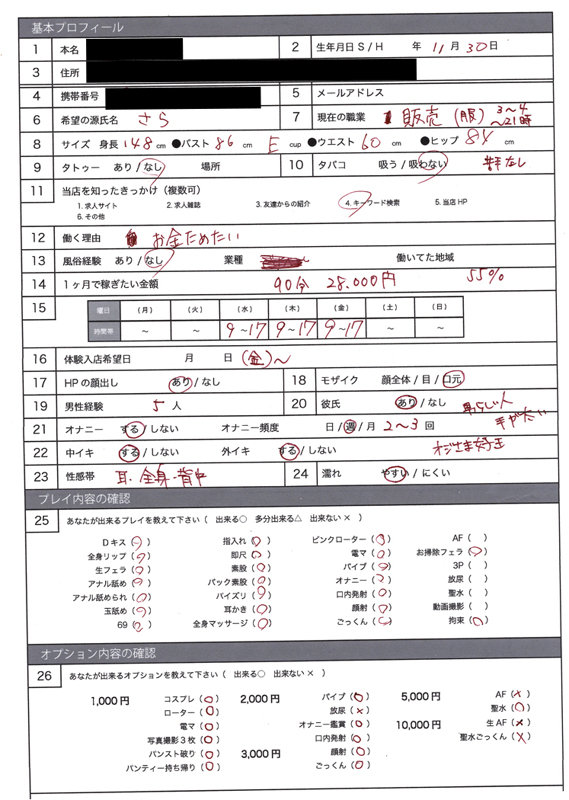 基本プロフィール
1 本名 2 生年月日 S / H 年 11月 30日
3 住所
4 携帯番号 5 メールアドレス
6 希望の源氏名 さら 7 現在の職業 販売(服) 3〜4 〜21時
8 サイズ 身長 148 cm ●バスト 86 cm E cup ●ウエスト 60 cm ●ヒップ 84 cm
9 タトゥー あり / なし 場所 10 タバコ 吸う / 吸わない
11 当店を知ったきっかけ(複数可)
1. 求人サイト 2. 求人雑誌 3. 友達からの紹介 4. キーワード検索 5. 当店 HP
6. その他
12 働く理由 お金ためたい
13 風俗経験 あり / なし 業種 働いてた地域
14 1ヶ月で稼ぎたい金額 90分 28.000円 55%
15 曜日 (月) (火) (水) (木) (金) (土) (日)
時間帯 〜 〜 9〜17 9〜17 9〜17 〜 〜
16 体験入店希望日 月 日 (金)〜
17 HPの顔出し あり / なし 18 モザイク 顔全体 / 目 / 口元
19 男性経験 5 人 20 彼氏 あり / なし
21 オナニー する / しない オナニー頻度 日 / 週 / 月 2〜3 回
22 中イキ する / しない 外イキ する / しない
23 性感帯 耳・全身・背中 24 濡れ やすい / にくい
プレイ内容の確認
25 あなたが出来るプレイを教えて下さい ( 出来る○ 多分出来る△ 出来ない× )
Dキス (○) 指入れ (○) ピンクローター (○) AF ( )
全身リップ (○) 即尺 (○) 電マ (○) お掃除フェラ (○)
生フェラ (○) 素股 (○) バイブ (○) 3P ( )
アナル舐め (○) バック素股 (○) オナニー (○) 放尿 ( )
アナル舐められ (○) パイズリ (○) 口内発射 (○) 聖水 ( )
玉舐め (○) 耳かき (○) 顔射 (○) 動画撮影 ( )
69 (○) 全身マッサージ (○) ごっくん (○) 拘束 (○)
オプション内容の確認
26 あなたが出来るオプションを教えて下さい ( 出来る○ 出来ない× )
1,000円 コスプレ (○) 2,000円 バイブ (○) 5,000円 AF (×)
ローター (○) 放尿 (×) 聖水 (○)
電マ (○) オナニー鑑賞 (○) 10,000円 生AF (×)
写真撮影3枚 (○) 口内発射 (○) 聖水ごっくん (×)
パンスト破り (○) 3,000円 顔射 (○)
パンティー持ち帰り (○) ごっくん (○)